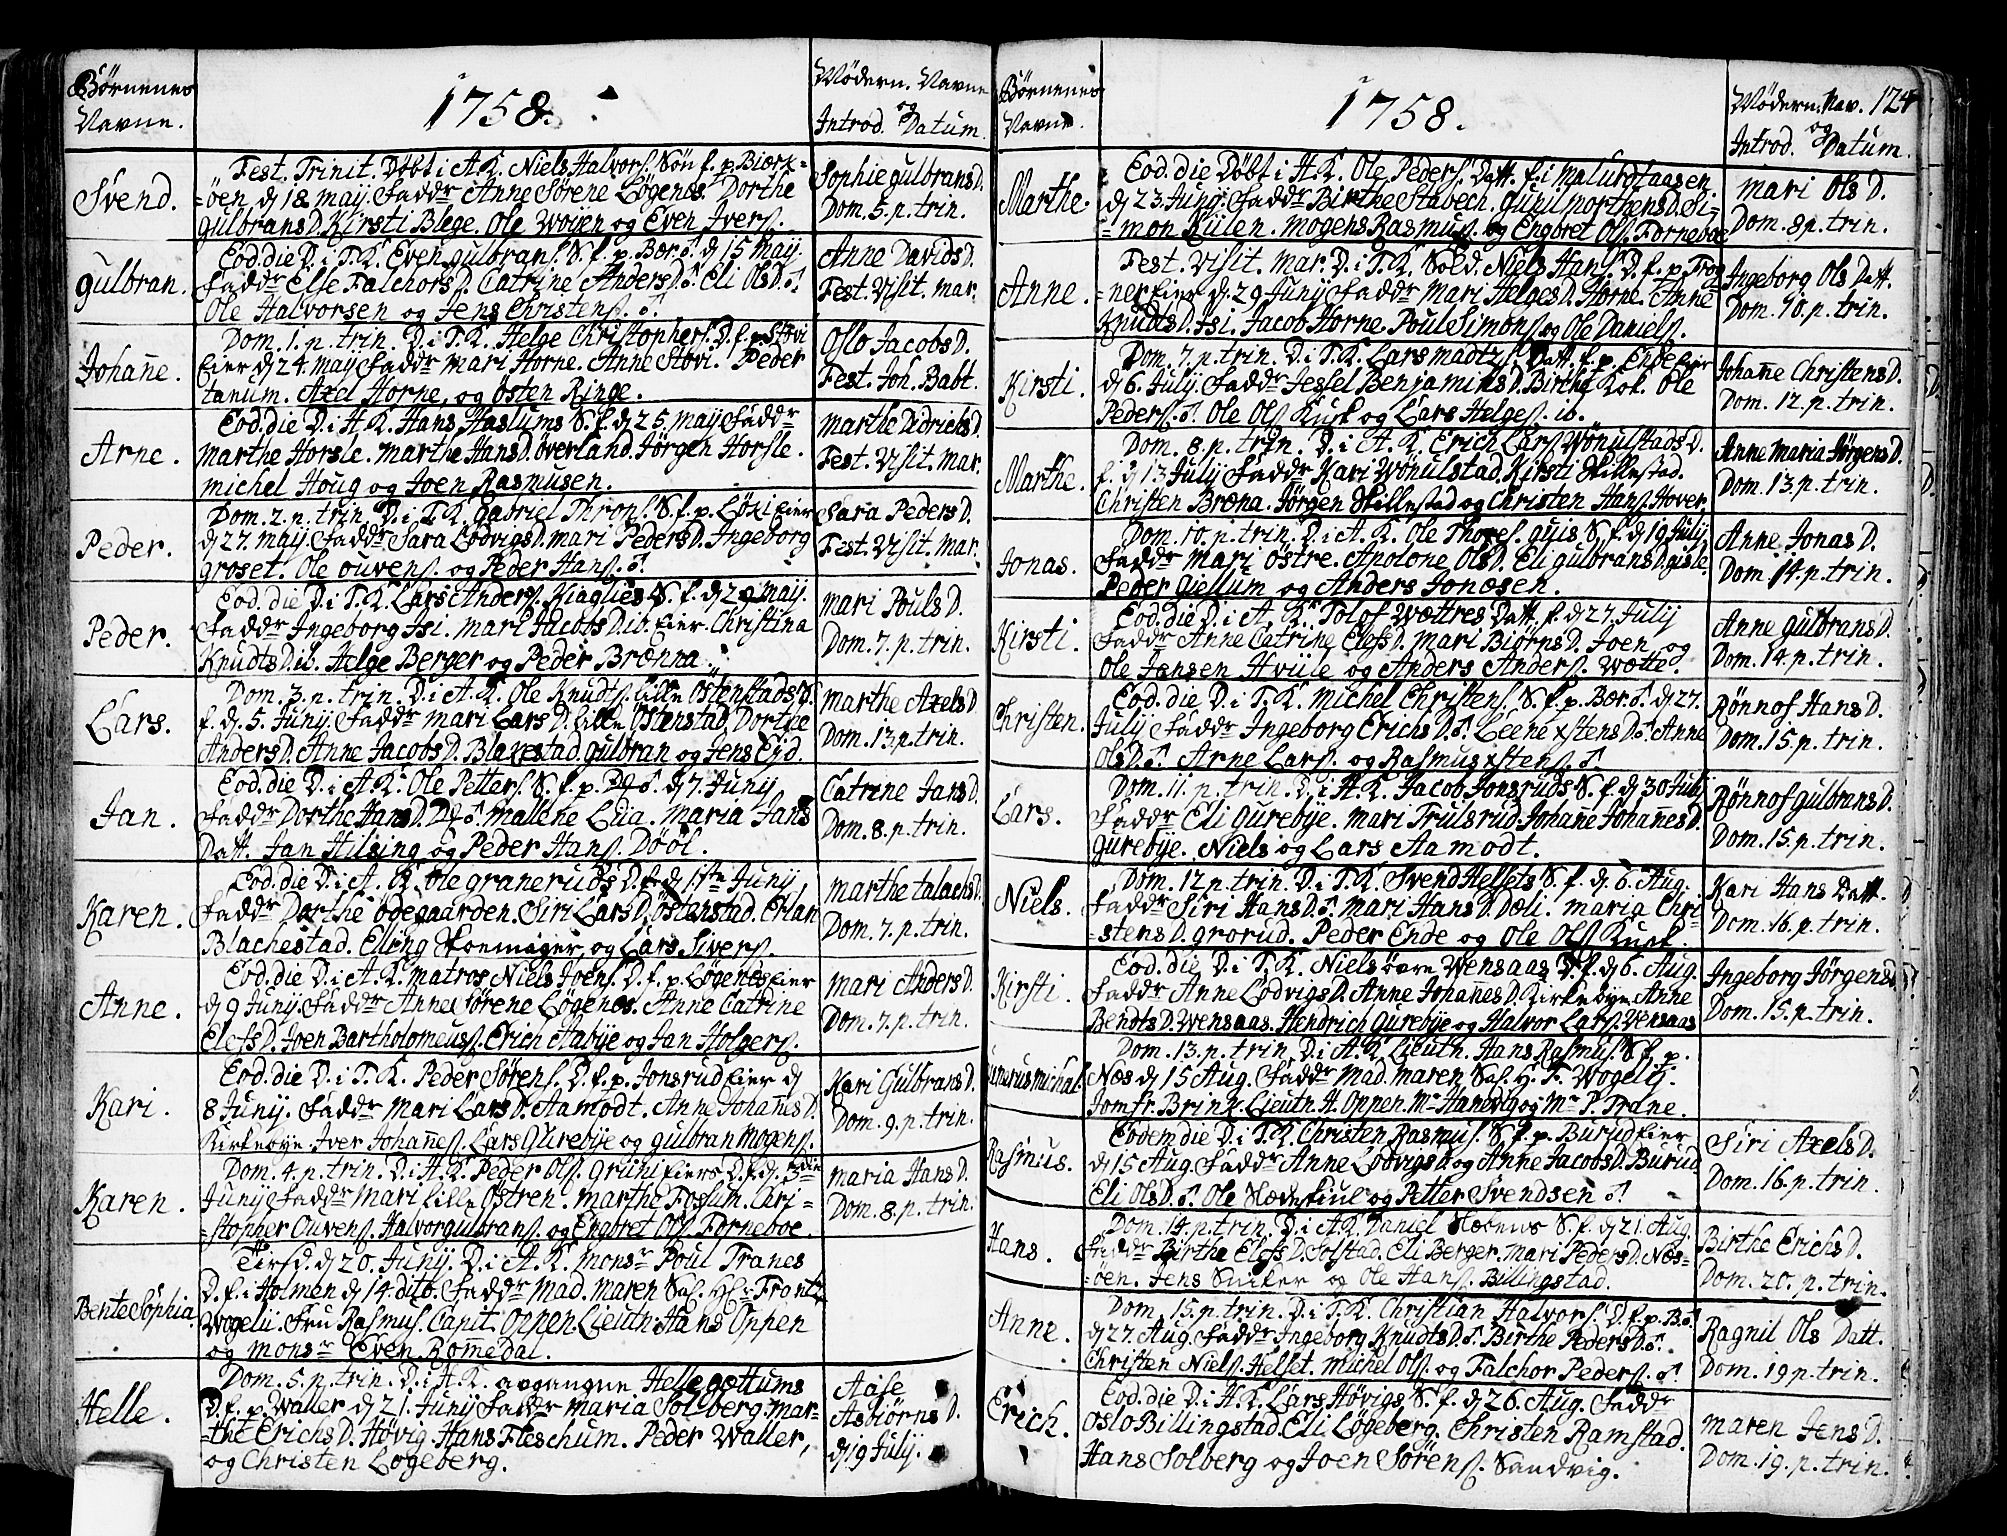 Børnenes
Navne.
1758.
Mødern. Navne
og
Introd. Datum.
Svend.
Fest. Trinit. Døbt i A.K. Niels Halvors. Søn f. p. Biærk-
-øen, d 18 may. Fadd^r Anne Sørene Løgenes. Dorthe
gulbransD. Kirsti Blege. Ole Woyen og Even Ivers.
Sophie gulbransD.
Dom. 5. p. trin.
gulbran.
Eod. die D. i T.K. Even gulbrans. S. f. p. Bær. d 15 may.
Fadd^r Else FalchorsD. Catrine AndersD. Eli OlsD.
Ole Halvorsen og Jens Christens.
Anne DavidsD.
Fest. Visit. mar.
Johanne.
Dom. 1. p. trin. D. i T.K. Helge Christophers. D. f. p. Stovi
Eier d 24. may Fadd^r mari Horne. Anne Stovi. Peder
tanum. Axel Horne, og Østen Ringe.
Oslo JacobsD.
Fest. Joh. Babt.
Arne.
Eod. die D. i H.K. Hans Haslums S. f. d 25. may Fadd^r
marthe Horsle. marthe HansD. øverland. Jørgen Horsle.
michel Houg og Joen Rasmusen.
marthe DidrichsD.
Fest. Visit. mar.
Peder.
Dom. 2. p. trin. D. i T.K. gabriel Throns. S. f. p. Løki Eier
d 27. may Fadd^r Sara LodvigsD. mari PedersD. Ingeborg
groset. Ole ouvens. og Peder Hans.
Sara PedersD.
Fest. Visit. mar.
Peder.
Eod. die D. i T.K. Lars Anders. Kiaglies S. f. d 29 may.
Fadd^r Ingeborg Isi. mari JacobsD. ib. Eier. Christina
KnudtsD. ib. Helge Berger og Peder Brønna.
mari PoulsD.
Dom. 7. p. trin.
Lars.
Dom. 3. p. trin. D. i A.K. Ole Knudts. lille ØstenstadsS.
f. d. 5. Junij. Fadd^r mari LarsD. lille Østenstad, Dorthe
AndersD. Anne JacobsD. Blakestad. gulbran og Jens Eyd.
marthe AxelsD.
Dom. 13. p. trin.
Jan.
Eod. die D. i A.K. Ole Petters. S. f. p. d 7. Junij
Fadd^r Dorthe HansD. mallene Lilia. maria Jans
Datt. Jan Hilsing og Peder Hans. Døøl.
Catrine JansD.
Dom. 8. p. trin.
Karen.
Eod. die D. i A.K. Ole graneruds D. f. d 1ste Junij
Fadd^r Dorthe Ødegaarden. Siri LarsD. Østenstad. Erlan
Blachestad. Elling Skoemager, og Lars Sivers.
marthe talachsD.
Dom. 7. p. trin.
Anne.
Eod. die D. i A.K. matros Niels Joens. D. f. p. LøgenesEier
d 9 Junij. Fadd^r Anne Sørene Løgenes. Anne Catrine
ElefsD. Joen Bartholomeuss. Erich Habye og Jan Holgers.
mari AndersD.
Dom. 7. p. trin.
Kari.
Eod. die D. i T.K. Peder Sørens. D. f. p. Jonsrud Eier d
8 Junij. Fadd^r mari LarsD. Aamodt. Anne JohannesD.
Kirkebye. Iver Johannes. Lars Gurebye og gulbran Mogens.
Kari GulbransD.
Dom. 9. p. trin.
Karen.
Dom. 4. p. trin. D. i H.K. Peder Ols. Grini Eiers D. f. d. 3die
Junij Fadd^r mari lille Østren. marthe Foslum. Chri-
-stopher Ouvens. Halvor gulbrans. og Engbret Ols. Forneboe.
maria HansD.
Dom. 8. p. trin.
Bente Sophia.
Tirsd. d 20. Junij. D. i A.K. mons^r Poul Tranes
D. f. i Holmen d 14. dito. Fadd^r mad. maren Sal. H^r Frantz
Wogelii. Fru Rasmus. Capit. Oppen. Lieutn. Hans Oppen
og mons^r Even Romedal.
Helle.
Dom. 5. p. trin. D. i H.K. avgangne Helle gottums
D. f. p. Waller d 21. Junij Fadd^r maria Solberg. mar-
-the ErichsD. Høvig. Hans Fleschum. Peder Waller,
og Christen Løgeberg.
Aase
AsbiørnsD.
d 19 July.
Børnenes
Navne
1758.
Mødern. Nav. 124
og
Introd. Datum.
Marthe.
Eod. die Døbt i H.K. Ole Peders. Datt. f. i Malurdtaasen
d 23 Junij. Fadd^r Birthe Stabech. gunil morthensD. Si-
-mon Kiilen. mogens Rasmus. og Engbret Ols. Forneboe
mari OlsD.
Dom. 8 p. trin.
Anne.
Fest. Visit. mar. D. i T.K. Sold. Niels Hans. D. f. p. Frog
-ner Eier d. 29 Junij Fadd^r mari HelgesD. Horne. Anne
KnudtsD. Isi. Jacob Horne. Poul Simons. og Ole Daniels.
Ingeborg Ols Datt.
Dom. 10. p. trin.
Kirsti
Dom. 7. p. trin. D. i T.K. Lars madtz. Datt. f. p. Ende Eier
d 6. July. Fadd^r Jessel BenjaminsD. Birthe Kok. Ole
Peders. Ole Ols. Kusk og Lars Helges. ib.
Johanne ChristensD.
Dom. 12. p. trin.
Marthe.
Dom. 8. p. trin. D. i A.K. Erich Lars. WønulstadsD.
f. d 13 July Fadd^r Kari Wønulstad. Kirsti Hillestad.
Christen Bræna. Jørgen Hillestad og Christen Hans. Hover.
Anne Maria JørgensD.
Dom. 13. p. trin.
Jonas.
Dom. 10. p. trin. D. i A.K. Ole Thores. gyis S. f. d 19 July
Fadd^r mari østre. Apolone OlsD. Eli gulbransD. gisle.
Peder giellum og Anders Jonæsen.
Anne JonasD.
Dom. 14. p. trin.
Kirsti.
Eod. die D. i A.K. Tolof Wættres Datt. f. d 27. July
Fadd^r Anne Catrine ElefsD. mari BiørnsD. Joen og
Ole Jansen Hviile og Anders Anders. Wætte.
Anne gulbransD.
Dom. 14. p. trin.
Christen.
Eod. die D. i T.K. michel Christens. S. f. p. Bær. d 27.
July Fadd^r Ingeborg ErichsD. Leene xstensD. Anne
OlsD. Arne Lars. og Rasmus xstens.
Rønnof HansD.
Dom. 15. p. trin.
Lars.
Dom. 11. p. trin. D. i H.K. Jacob Jonsruds S. f. d 30 July
Fadd^r Eli gurebye. mari Trulsrud. Johanne JohannesD.
gurebye. Niels og Lars Aamodt.
Rønnof gulbransD.
Dom. 15. p. trin.
Niels.
Dom. 12 p. trin. D. i T.K. Svend Hellets S. f. d. 6. Aug.
Fadd^r Siri HansD. mari HansD. Dæli. maria Chri-
-stensD. grorud. Peder Ende og Ole Ols. Kusk.
Kari Hans Datt.
Dom. 16. p. trin.
Kirsti.
Eod. die D. i T.K. Niels øvre Wensaas D. f. d 6. Aug.
Fadd^r Anne LodvigsD. Anne JohannesD. Kirkebye. Anne
BendtsD. Wensaas. Hendrich gurebye og Halvor Lars. Wensaas
Ingeborg JørgensD.
Dom. 15. p. trin.
Dom. 13. p. trin. D. i A.K. Lieutn. Hans Rasmus. S. f. p.
Næs d 15 Aug. Fadd^r Mad. maren Sal. H. F. Wogelij.
Jomfr. Brink. Lieutn. H. Oppen. M^r og M^r P. Trane.
Rasmus.
Eodem die D. i T.K. Christen Rasmus. S. f. p. Burud Eier
d 15 Aug. Fadd^r Anne LodvigsD. og Anne JacobsD. Burud
Eli OlsD. Ole og Petter Svendsen
Siri AxelsD.
Dom. 16. p. trin.
Hans.
Dom. 14. p. trin. D. i A.K. Daniel S. f. d 21. Aug.
Fadd^r Birthe ElefsD. Solstad. Eli Berger. Mari PedersD. Næs-
-øen. Jens og Ole Hans. Billingstad.
Birthe ErichsD.
Dom. 20. p. trin.
Anne.
Dom. 15. p. trin. D. i T.K. Christian Halvors. D. f. p. B.
d 27. Aug. Fadd^r Ingeborg KnudtsD. Birthe PedersD.
Christen Niels. Helset. Michel Ols. og Falchor Peders.
Ragnil Ols Datt.
Dom. 19 p. trin.
Erich.
Eod. die D. i H.K. Lars Høvigs S. f. d 26. Aug. Fadd^r
Oslo Billingstad. Eli Løgeberg. Christen Ramstad.
Hans Solberg og Joen Sørens. Sandvig.
maren JensD.
Dom. 19. p. trin.